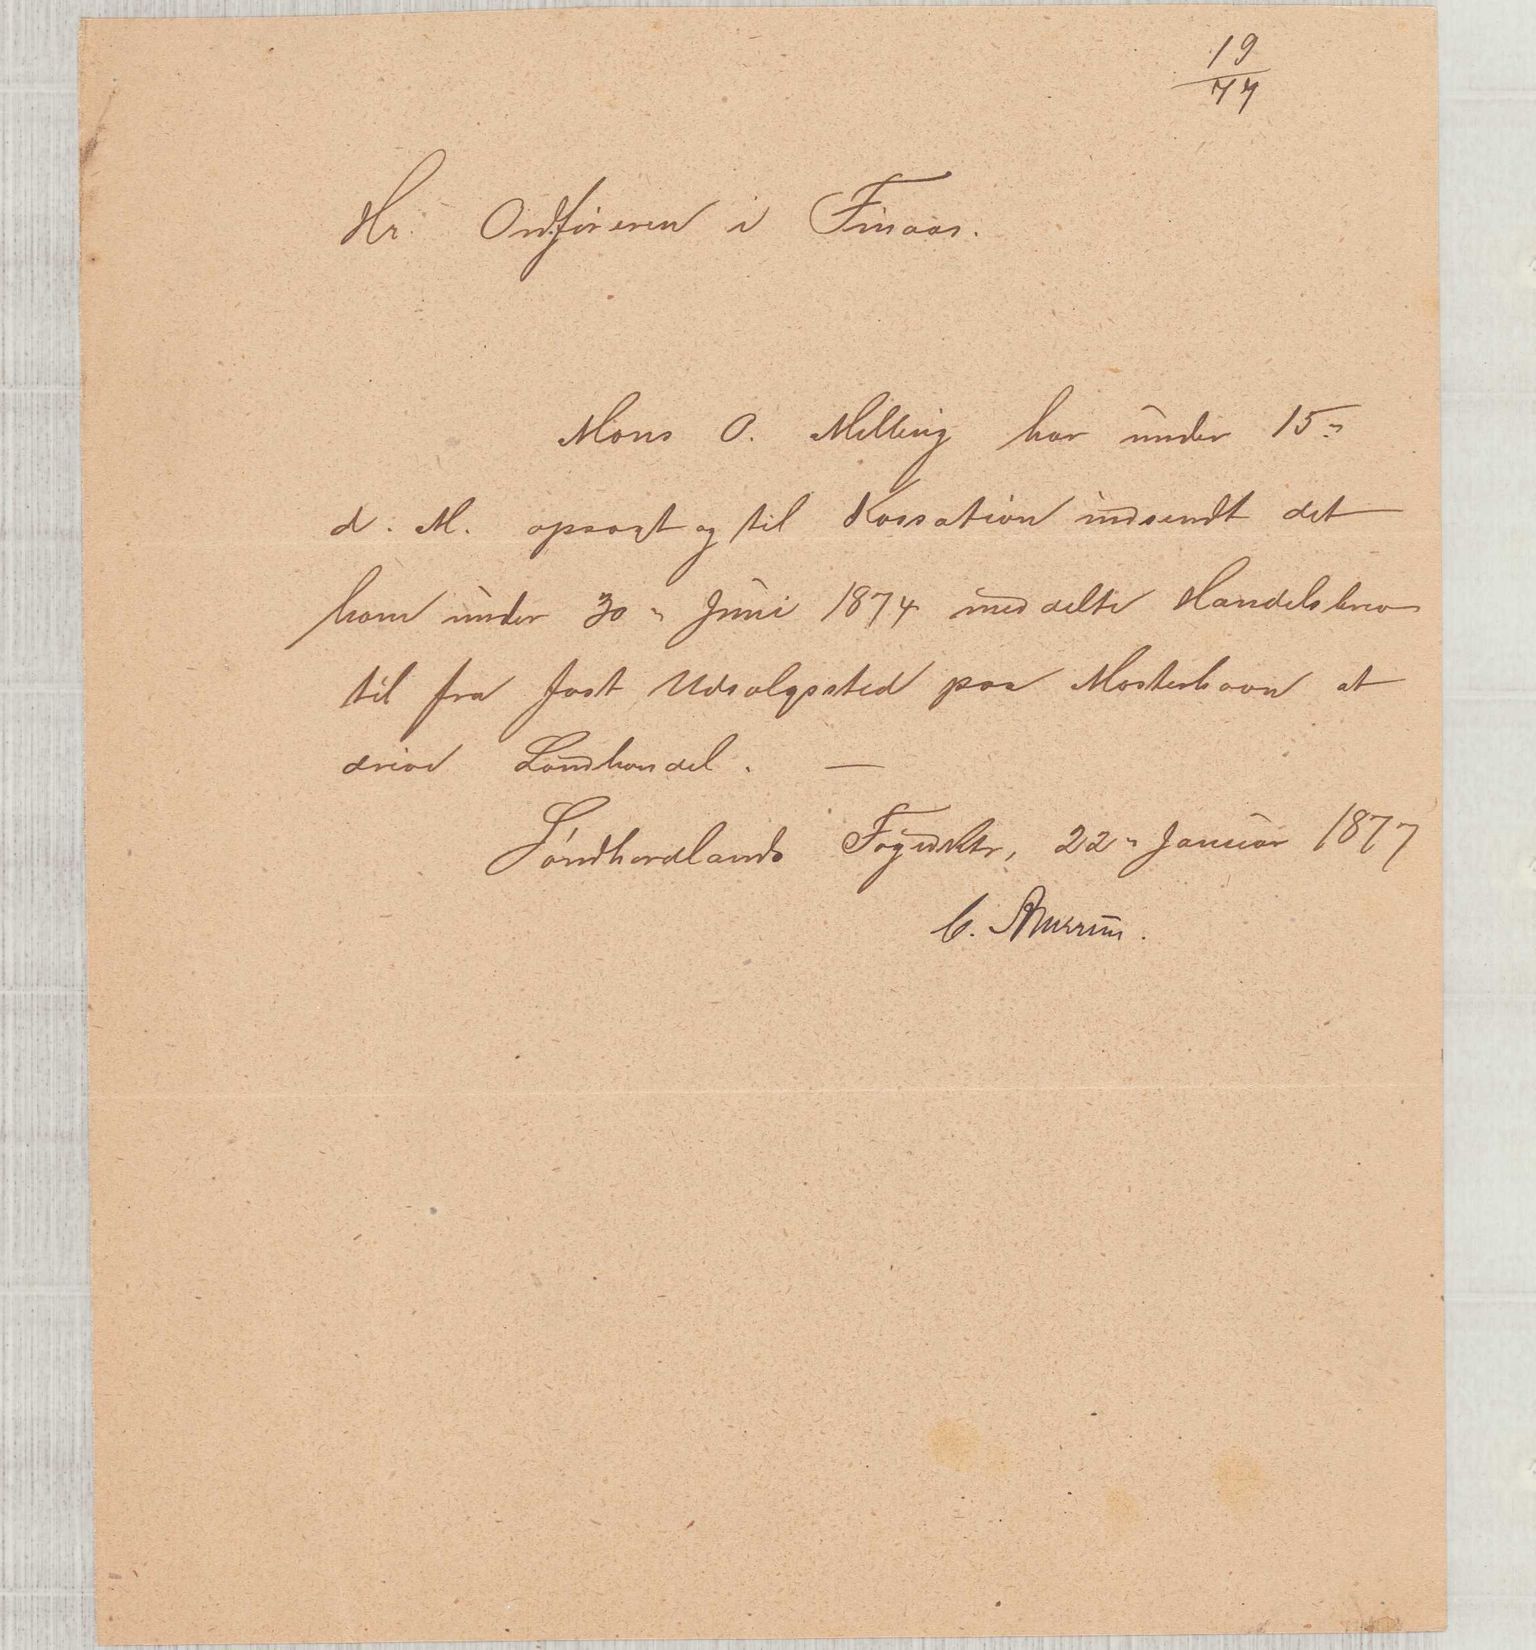 19
77
Hr. Ordføreren i Finaas.
Mons O. Melling har under 15de
d. M. opsagt og til Kassation indsendt det
ham under 30te Juni 1874 meddelte Handelsbrev
til fra fast Udsalgssted paa Mosterhavn at
drive Landhandel. —
Søndhordlands Fogedktr, 22de Januar 1877
C.